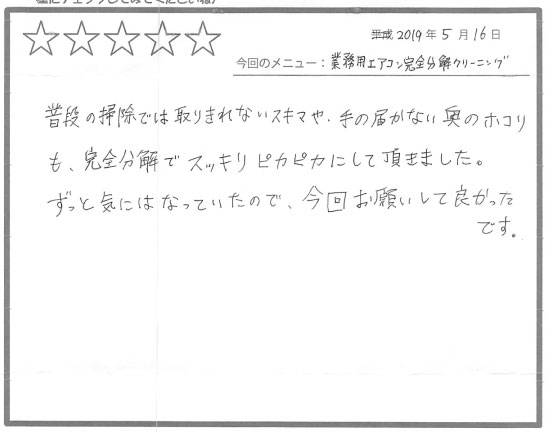 平成 2019年 5月 16日
今回のメニュー：業務用エアコン完全分解クリーニング
普段の掃除では取りきれないスキマや、手の届かない奥のホコリ
も、完全分解でスッキリピカピカにして頂きました。
ずっと気にはなっていたので、今回お願いして良かった
です。